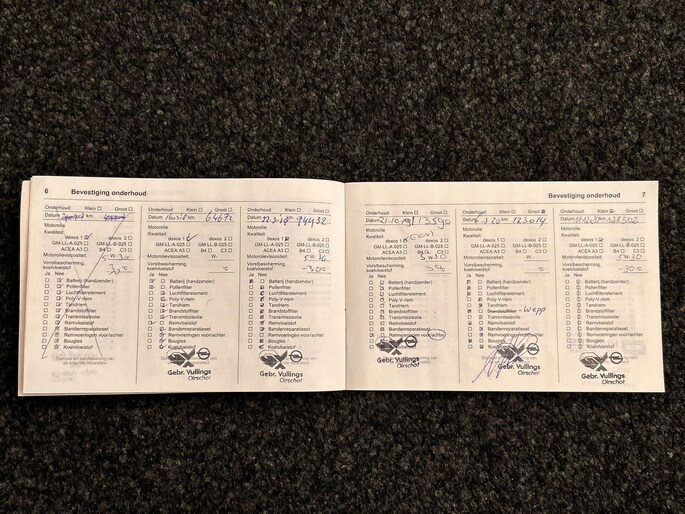 6 Bevestiging onderhoud
Onderhoud: Klein Groot
Datum km
Motorolie
Kwaliteit:
dexos 1 dexos 2
GM-LL-A-025 GM-LL-B-025
ACEA A3 B4 C3
Motorolieviscositeit: 5W30
Vorstbescherming,
koelvloeistof °C
Ja Nee
Batterij (handzender)
Pollenfilter
Luchtfilterelement
Poly-V-riem
Tandriem
Brandstoffilter
Transmissieolie
Remvloeistof
Bandenreparatieset
Remmenreiniger voor/achter
Bougies
Koelvloeistof
Onderhoud: Klein Groot
Datum km 64672
Motorolie
Kwaliteit:
dexos 1 dexos 2
GM-LL-A-025 GM-LL-B-025
ACEA A3 B4 C3
Motorolieviscositeit: W-
Vorstbescherming,
koelvloeistof °C
Ja Nee
Batterij (handzender)
Pollenfilter
Luchtfilterelement
Poly-V-riem
Tandriem
Brandstoffilter
Transmissieolie
Remvloeistof
Bandenreparatieset
Bougies
Koelvloeistof
Gebr. Vullings
Oirschot
Onderhoud: Klein Groot
94432
Motorolie
Kwaliteit:
dexos 1 dexos 2
GM-LL-A-025 GM-LL-B-025
ACEA A3 B4 C3
Motorolieviscositeit: 5W30
Vorstbescherming,
koelvloeistof -30°C
Ja Nee
Batterij (handzender)
Pollenfilter
Luchtfilterelement
Poly-V-riem
Tandriem
Brandstoffilter
Transmissieolie
Remvloeistof
Bandenreparatieset
Bougies
Koelvloeistof
Gebr. Vullings
Oirschot
Bevestiging onderhoud 7
Onderhoud: Klein Groot
Datum 21-10-19 113590
Motorolie
Kwaliteit:
dexos 1 dexos 2
GM-LL-A-025 GM-LL-B-025
ACEA A3 B4 C3
Motorolieviscositeit: 5W30
Vorstbescherming,
koelvloeistof °C
Ja Nee
Batterij (handzender)
Pollenfilter
Luchtfilterelement
Poly-V-riem
Tandriem
Brandstoffilter
Transmissieolie
Remvloeistof
Bandenreparatieset
Bougies
Koelvloeistof
Gebr. Vullings
Oirschot
Onderhoud: Klein Groot
Datum km 123014
Motorolie
Kwaliteit:
dexos 1 dexos 2
GM-LL-A-025 GM-LL-B-025
ACEA A3 B4 C3
Motorolieviscositeit: W-
Vorstbescherming,
koelvloeistof °C
Ja Nee
Batterij (handzender)
Pollenfilter
Luchtfilterelement
Poly-V-riem
Tandriem
Brandstoffilter
Transmissieolie
Remvloeistof
Bandenreparatieset
Bougies
Koelvloeistof
Gebr. Vullings
Oirschot
Onderhoud: Klein Groot
Datum 138502
Motorolie
Kwaliteit:
dexos 1 dexos 2
GM-LL-A-025 GM-LL-B-025
ACEA A3 B4 C3
Motorolieviscositeit: 5W30
Vorstbescherming,
koelvloeistof -30°C
Ja Nee
Batterij (handzender)
Pollenfilter
Luchtfilterelement
Poly-V-riem
Tandriem
Brandstoffilter
Transmissieolie
Remvloeistof
Bandenreparatieset
Bougies
Koelvloeistof
Gebr. Vullings
Oirschot